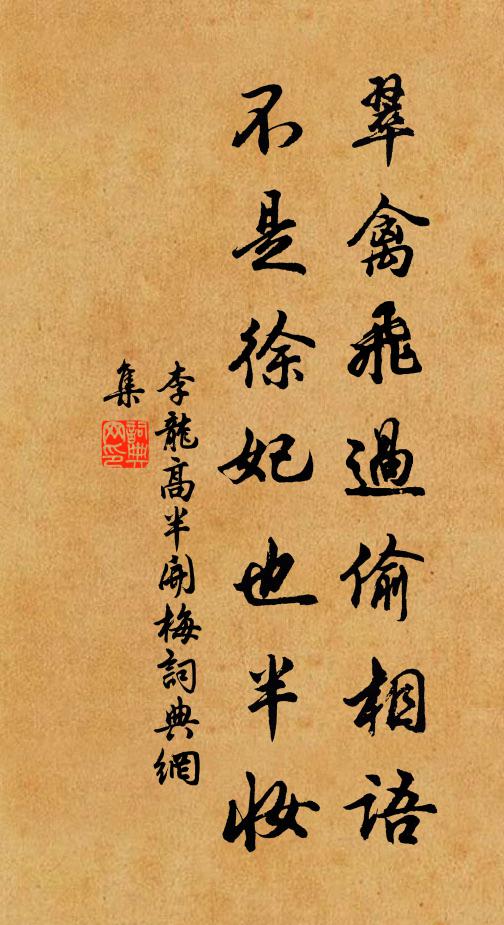 翠禽飛過偷相語
不是徐妃也半妝
李龍高半開梅詞典網
集
詞典網印